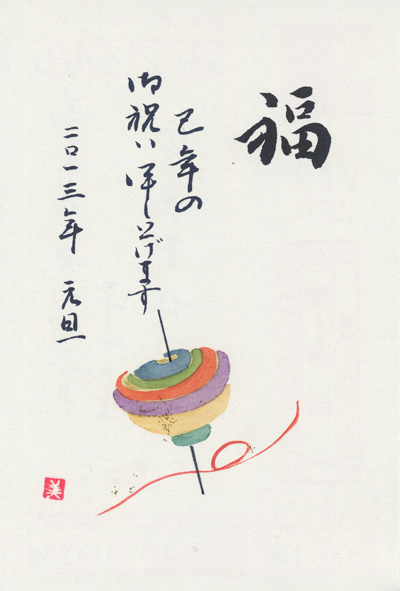 福
巳年の
御祝い申し上げます
二〇一三年 元旦
美